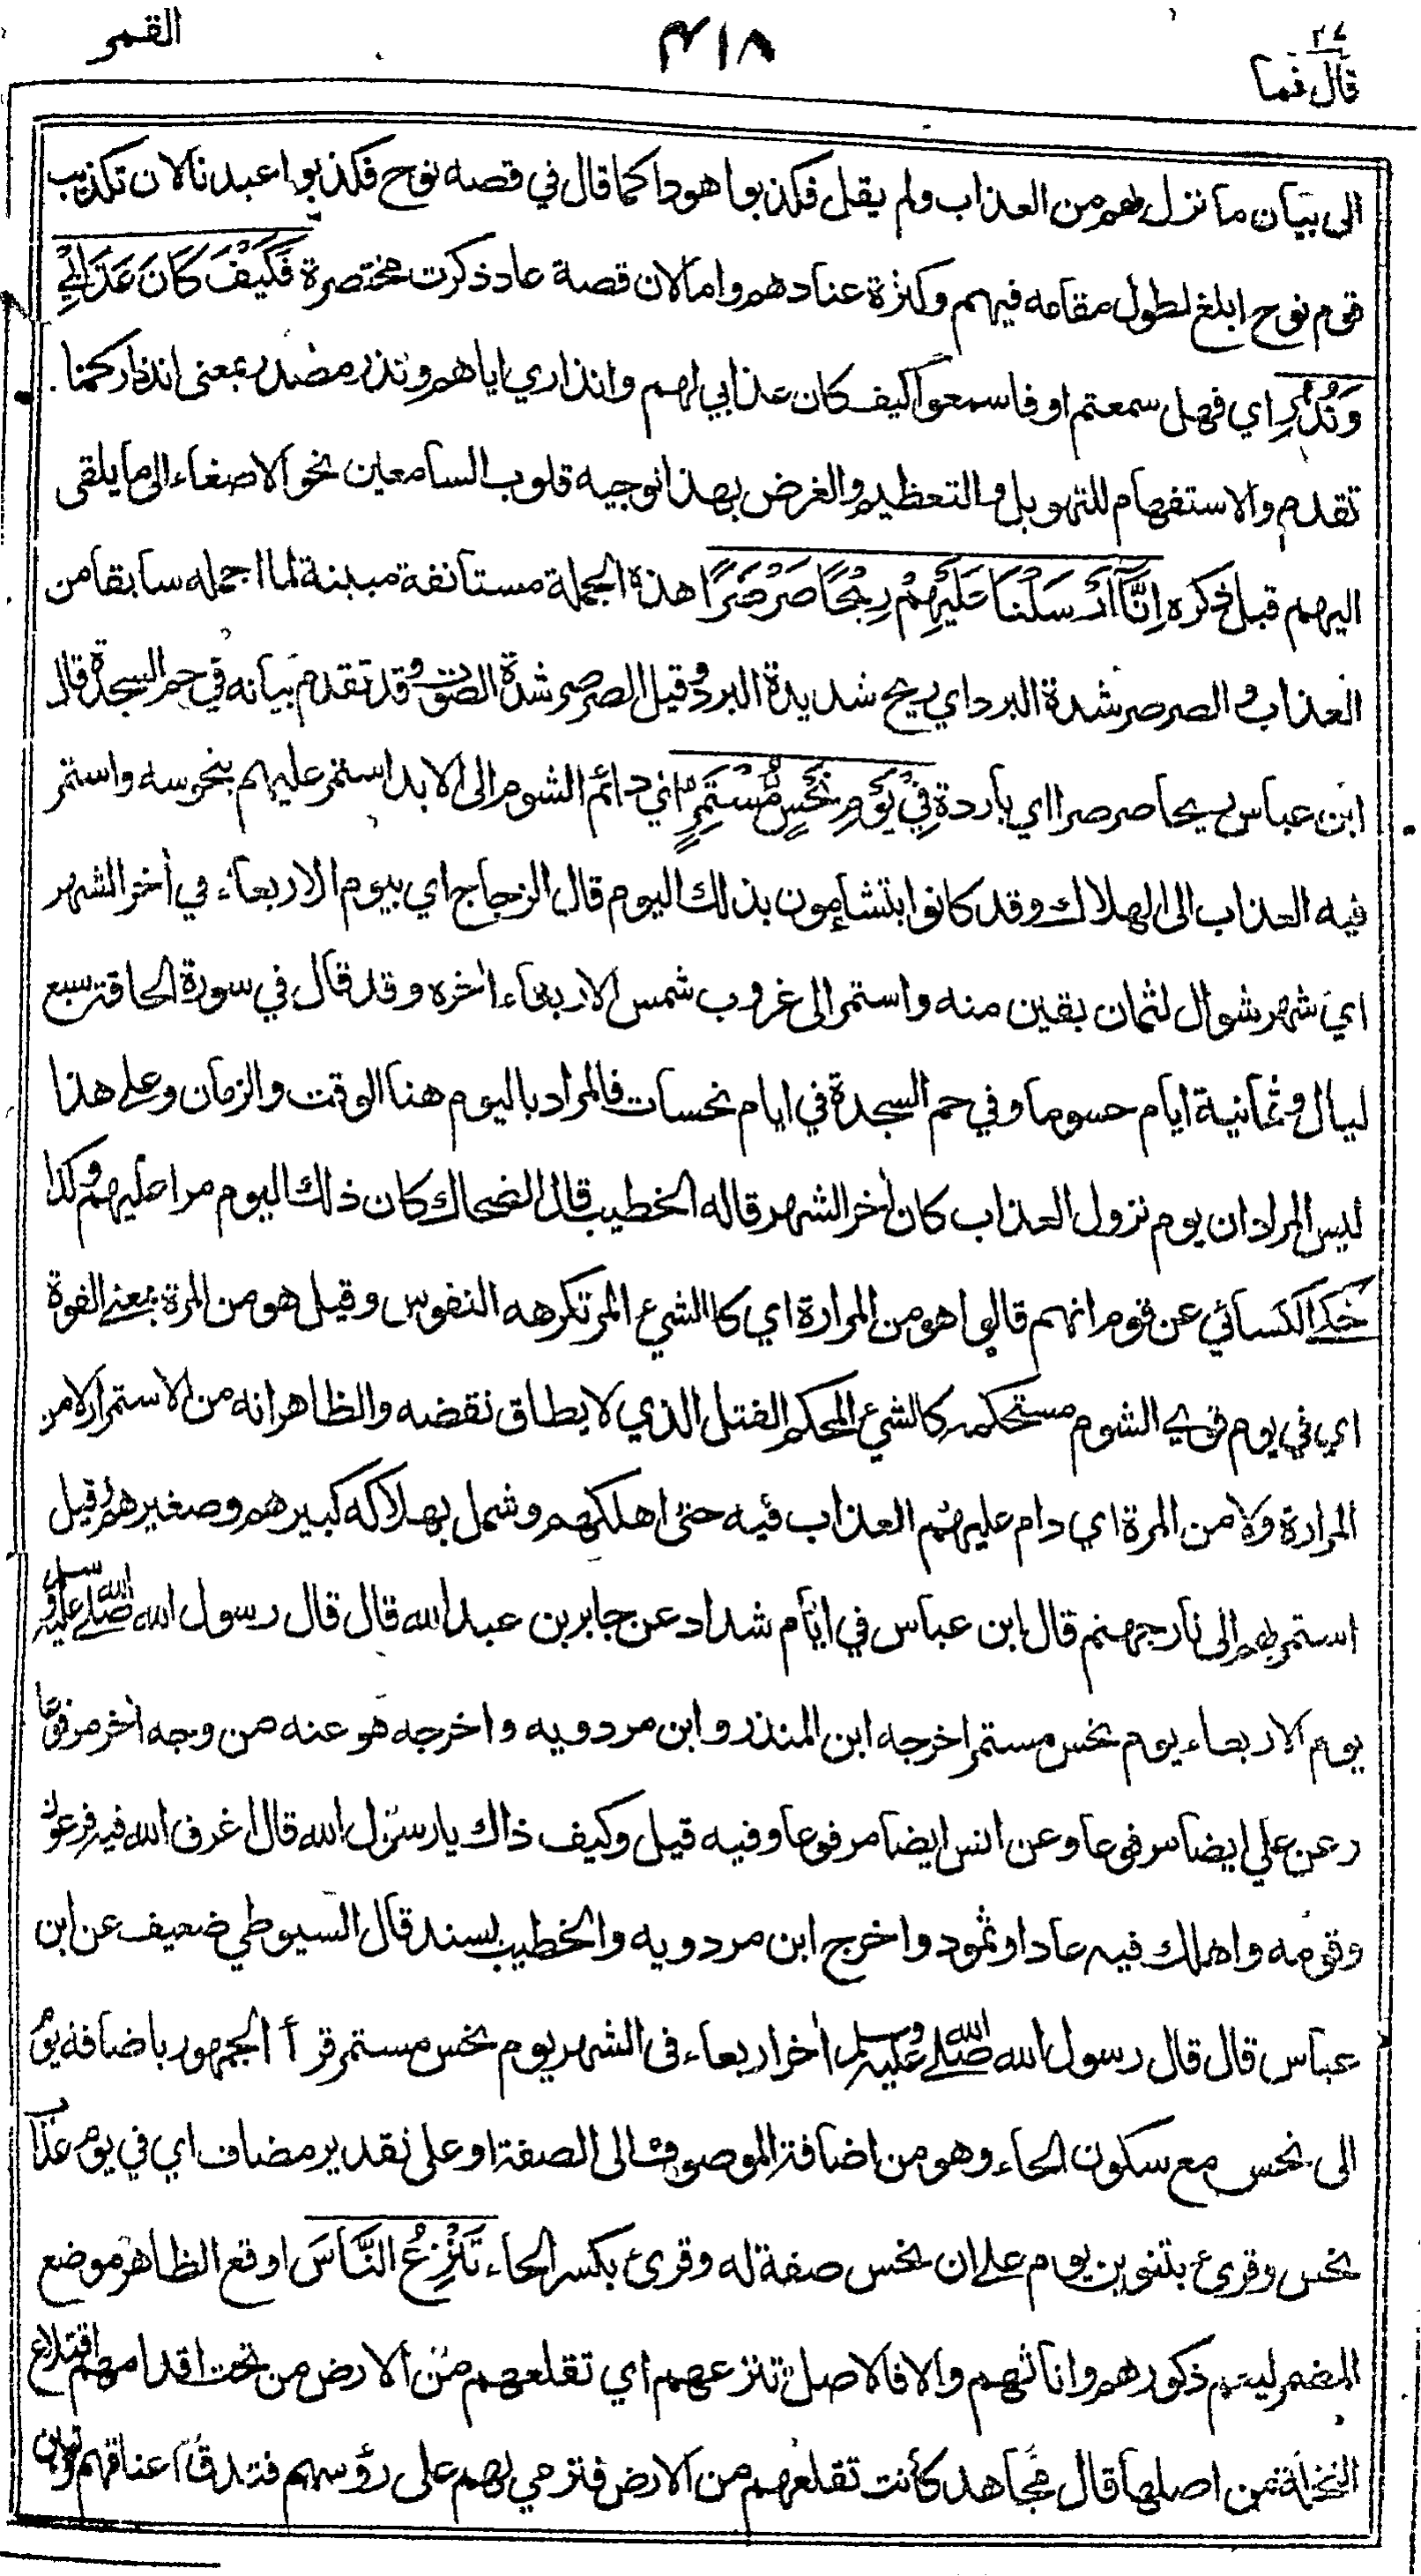 القمر
٤١٨
٢٧
قال فما
الى بيان ما نزل بهم من العذاب ولم يقل فكذبوا هودا كما قال في قصه نوح فكذبوا عبدنا لان تكذيب
قوم نوح ابلغ لطول مقامه فيهم وكثرة عنادهم واما لان قصة عاد ذكرت مختصرة فَكَيْفَ كَانَ عَذَابِيْ
وَنُذُرِ اي فهل سمعتم او فاسمعوا كيف كان عذابي لهم وانذاري اياهم ونذر مصدر بمعنى انذار كما
تقدم والاستفهام للتهويل والتعظيم والغرض بهذا توجيه قلوب السامعين نحو الاصغاء الى ما يلقى
اليهم قبل ذكره اِنَّآ اَرْسَلْنَا عَلَيْهِمْ رِيْحًا صَرْصَرًا هذه الجملة مستانفة مبينة لما اجمله سابقا من
العذاب والصرصر شدة البرد اي ريح شديدة البرد وقيل الصرصر شدة الصوت وقد تقدم بيانه في حم السجدة قال
ابن عباس ريحا صرصرا اي باردة فِيْ يَوْمِ نَحْسٍ مُّسْتَمِرٍّ اي دائم الشوم الى الابد استمر عليهم بنحوسه واستمر
فيه العذاب الى الهلاك وقد كانوا يتشاءمون بذلك اليوم قال الزجاج اي بيوم الاربعاء في اخر الشهر
اي شهر شوال لثمان بقين منه واستمر الى غروب شمس الاربعاء اخره وقد قال في سورة الحاقة سبع
ليال وثمانية ايام حسوما وفي حم السجدة في ايام نحسات فالمراد باليوم هنا الوقت والزمان وعلى هذا
ليس المراد ان يوم نزول العذاب كان اخر الشهر قاله الخطيب قال الضحاك كان ذلك اليوم مرا عليهم وكذا
حكى الكسائي عن قوم انهم قالوا هو من المرارة اي كالشيء المر تكرهه النفوس وقيل هو من المرة بمعنى القوة
اي في يوم قوي الشوم مستحكمه كالشيء المحكم الفتل الذي لا يطاق نقضه والظاهر انه من الاستمرار لا من
المرارة ولا من المرة اي دام عليهم العذاب فيه حتى اهلكهم وشمل بهلاكه كبيرهم وصغيرهم وقيل
استمر بهم الى نار جهنم قال ابن عباس في ايام شداد عن جابر بن عبد الله قال قال رسول الله صلى الله عليه وسلم
يوم الاربعاء يوم نحس مستمر اخرجه ابن المنذر وابن مردويه واخرجه هو عنه من وجه اخر مرفوعا
وعن علي ايضا مرفوعا وعن انس ايضا مرفوعا وفيه قيل وكيف ذاك يا رسول الله قال اغرق الله فيه فرعون
وقومه واهلك فيه عادا وثمود واخرج ابن مردويه والخطيب بسند قال السيوطي ضعيف عن ابن
عباس قال قال رسول الله صلى الله عليه وسلم اخر اربعاء فى الشهر يوم نحس مستمر قرأ الجمهور باضافة يوم
الى نحس مع سكون الحاء وهو من اضافة الموصوف الى الصفة او على تقدير مضاف اي في يوم عذاب
نحس وقرئ بتنوين يوم على ان نحس صفة له وقرئ بكسر الحاء تَنْزِعُ النَّاسَ اوقع الظاهر موضع
المضمر ليعم ذكورهم واناثهم والا فالاصل تنزعهم اي تقلعهم من الارض من تحت اقدامهم اقتلاع
النخلة من اصلها قال مجاهد كانت تقلعهم من الارض فترمي بهم على رؤسهم فتدق اعناقهم وتبين